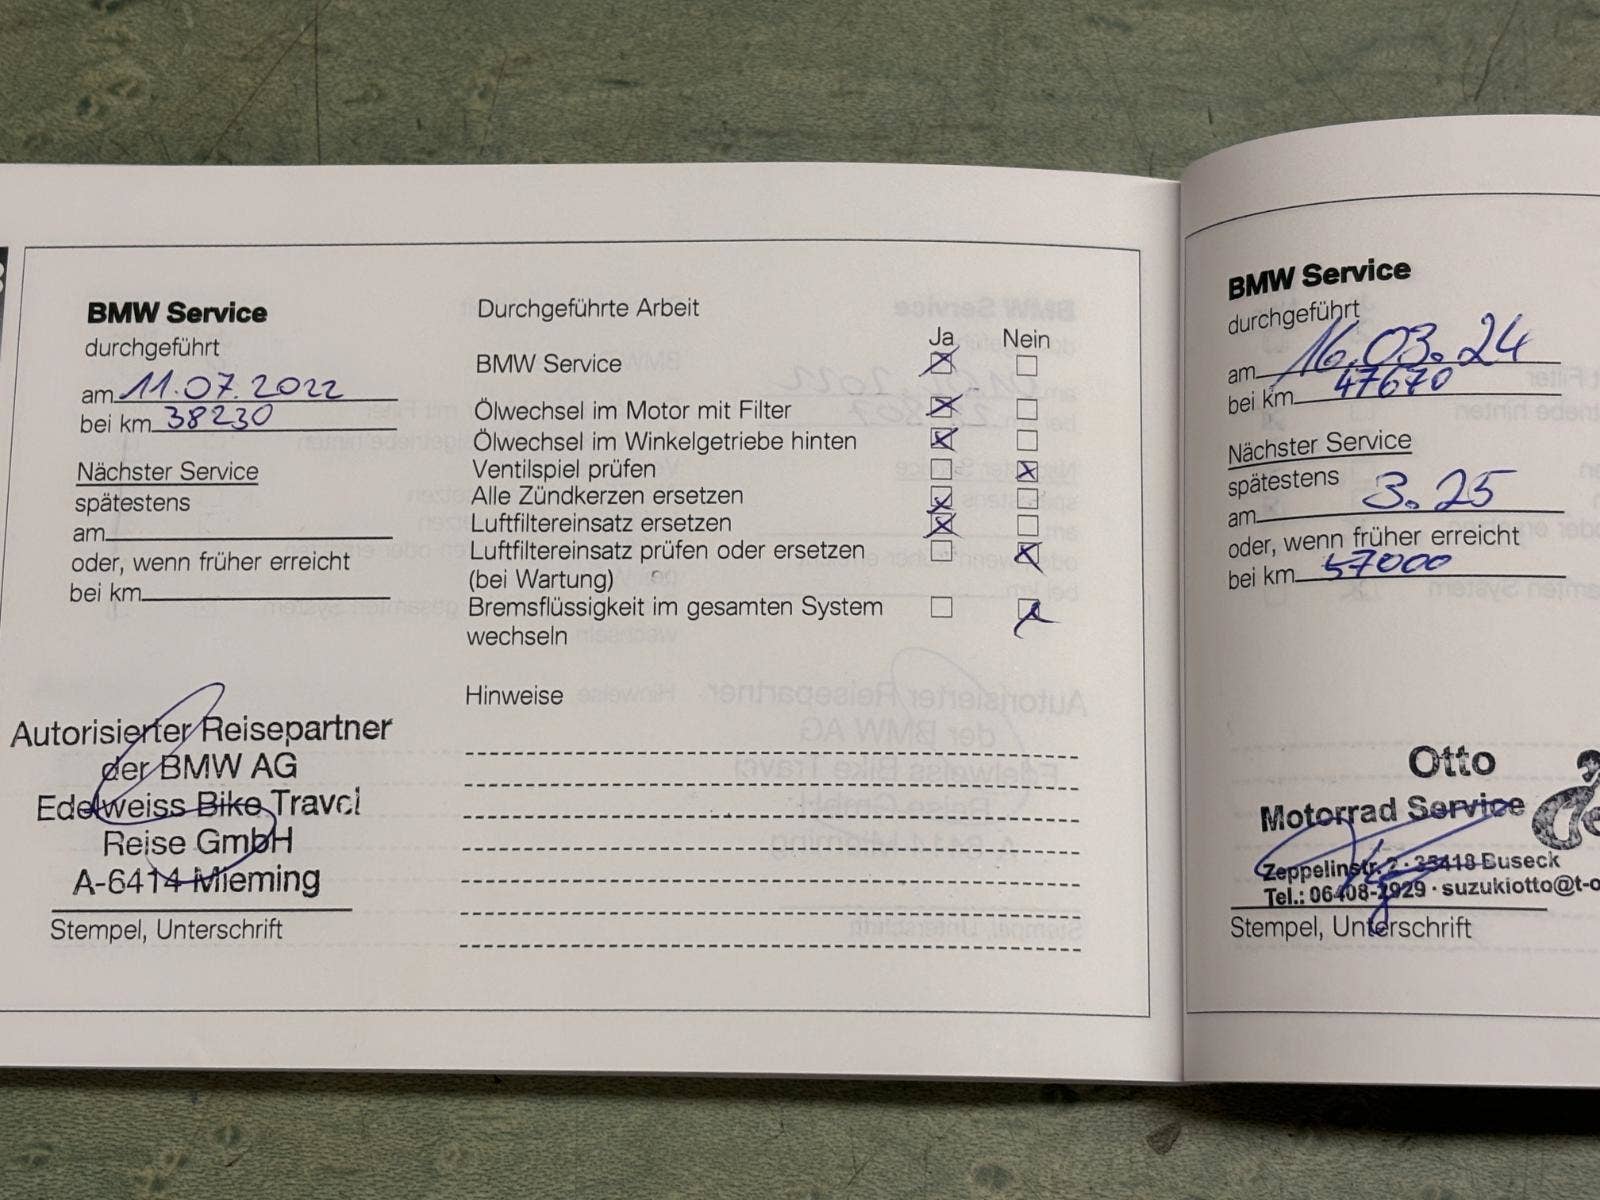 BMW Service
durchgeführt
am 11.07.2022
bei km 38230
Nächster Service
spätestens
am
oder, wenn früher erreicht
bei km
Autorisierter Reisepartner
der BMW AG
Edelweiss Bike Travel
Reise GmbH
A-6414 Mieming
Stempel, Unterschrift
Durchgeführte Arbeit
Ja Nein
BMW Service
Ölwechsel im Motor mit Filter
Ölwechsel im Winkelgetriebe hinten
Ventilspiel prüfen
Alle Zündkerzen ersetzen
Luftfiltereinsatz ersetzen
Luftfiltereinsatz prüfen oder ersetzen
(bei Wartung)
Bremsflüssigkeit im gesamten System
wechseln
Hinweise
BMW Service
durchgeführt
am 16.03.24
bei km 47670
Nächster Service
spätestens
am 3.25
oder, wenn früher erreicht
bei km 57000
Otto
Motorrad Service
Zeppelinstr. 2 · 35418 Buseck
Tel.: 06408-2929 · suzukiotto@t-o
Stempel, Unterschrift